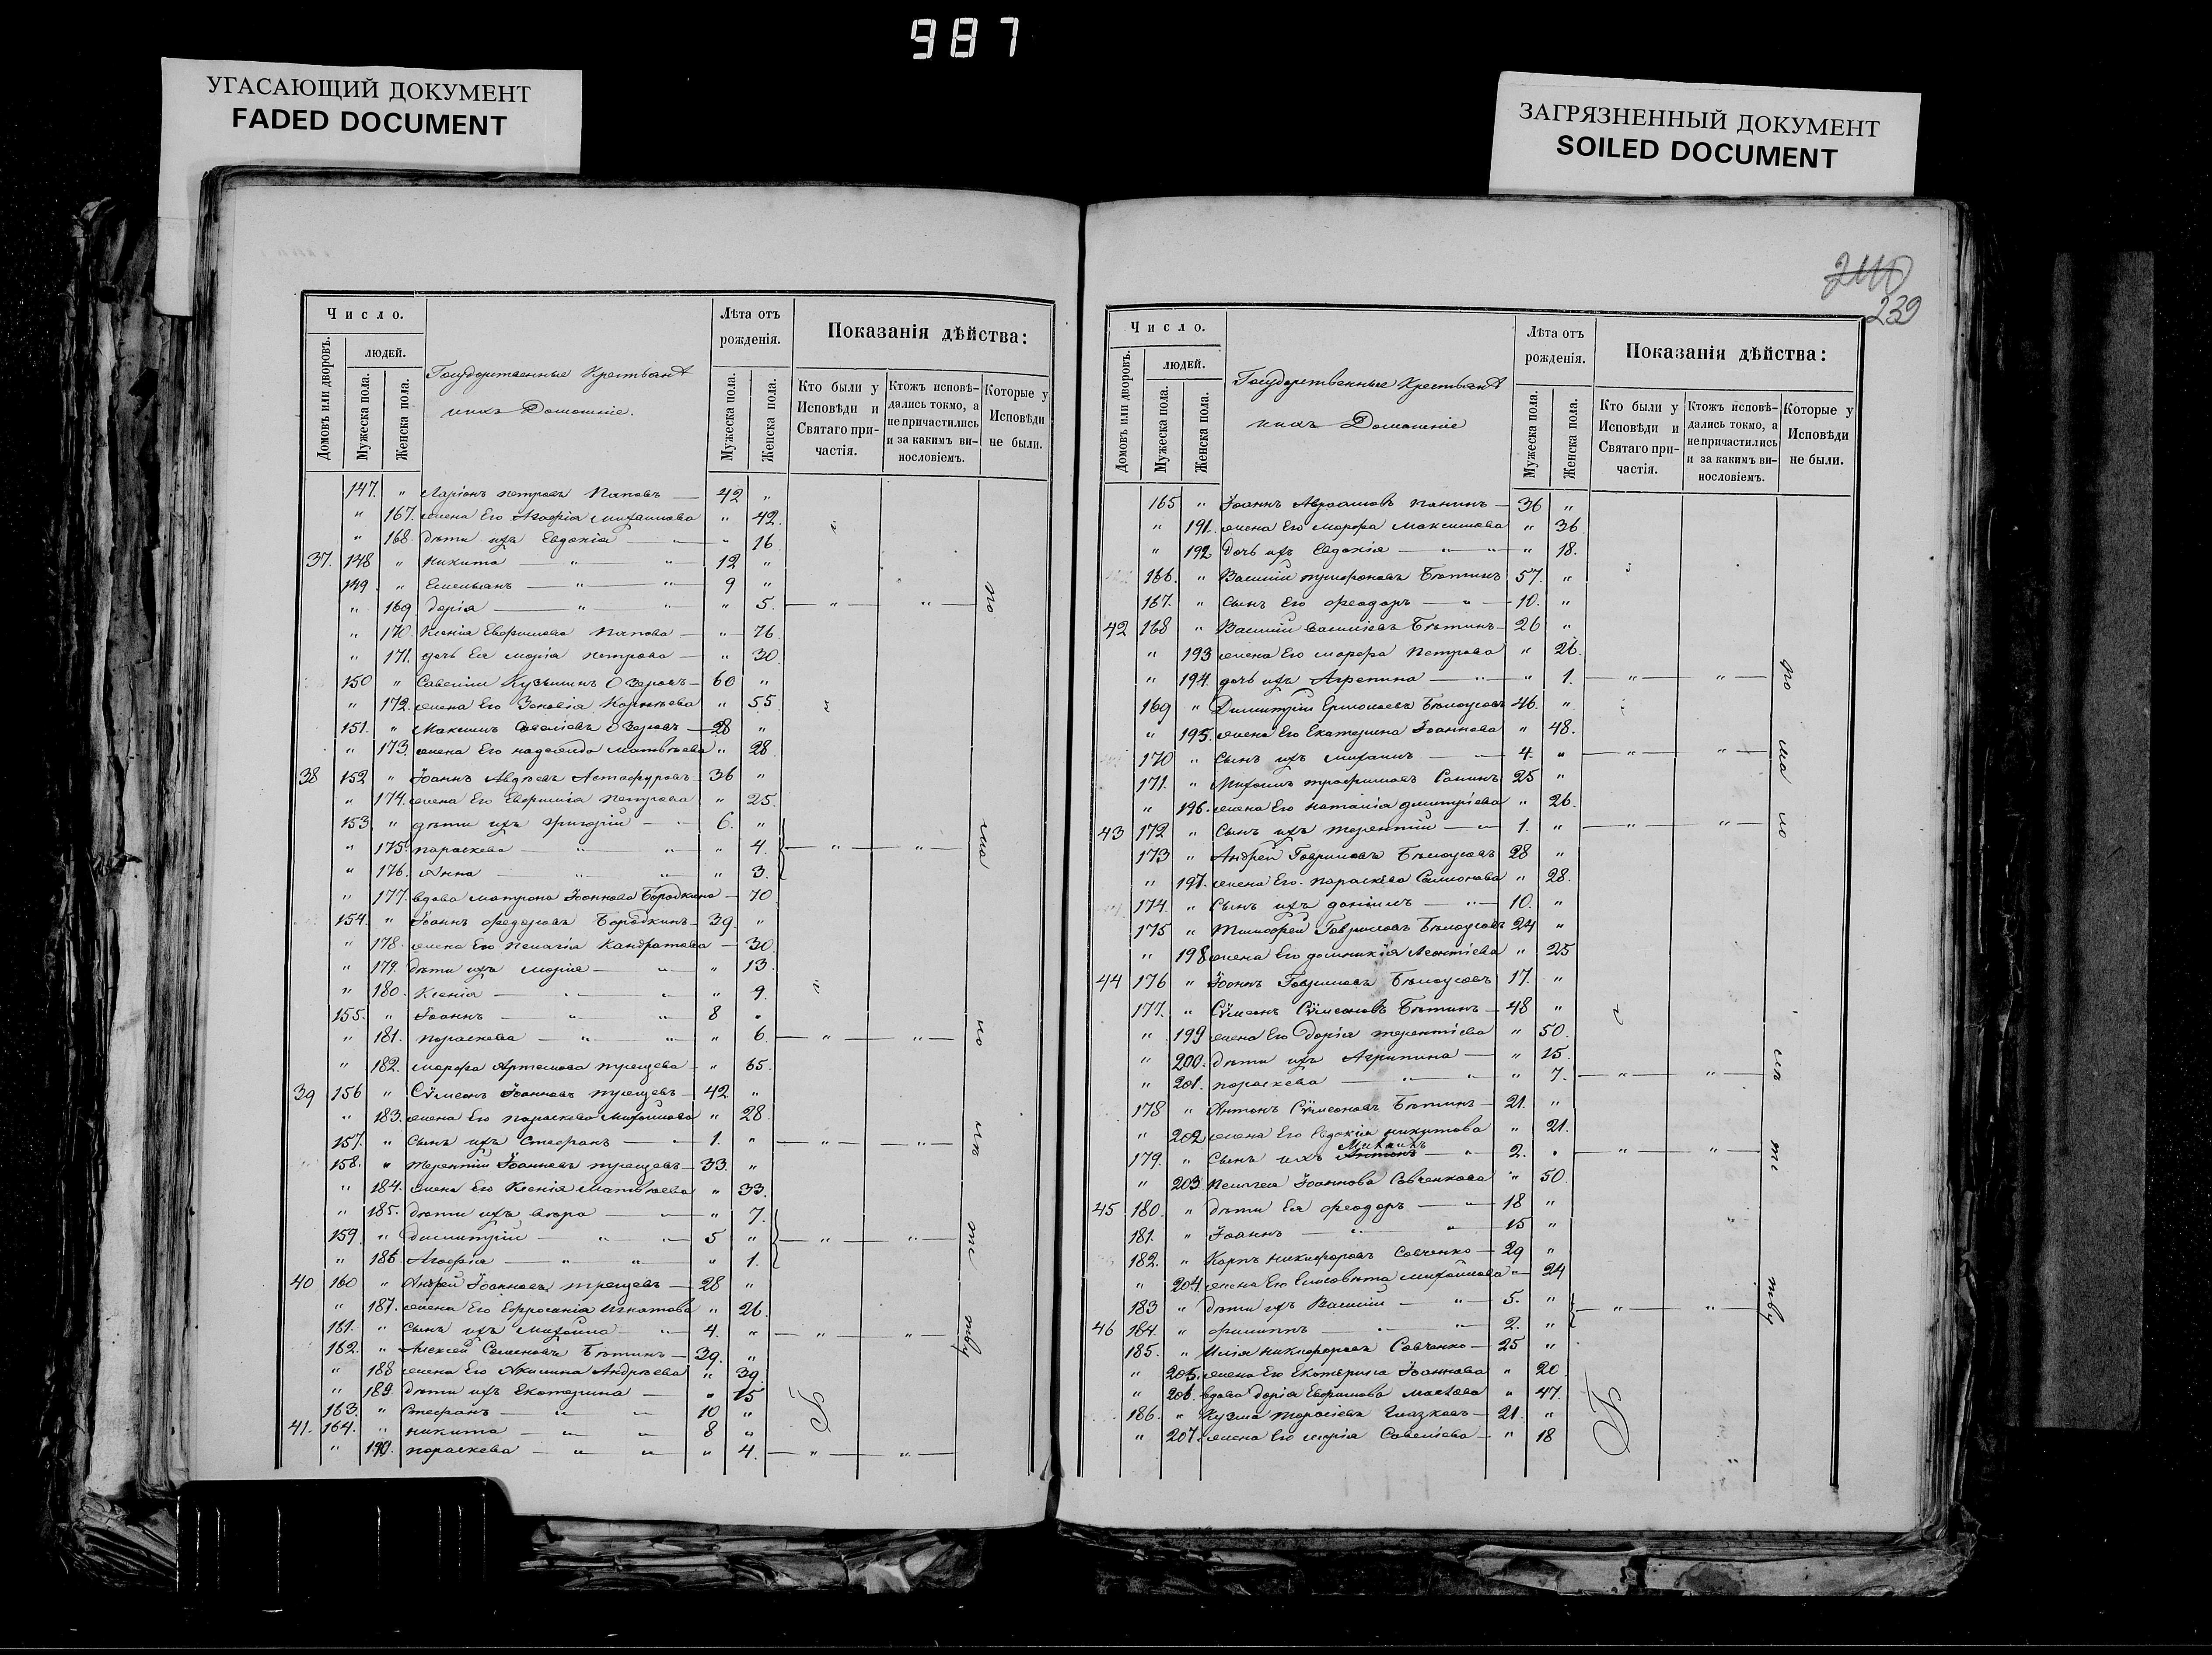 987
УГАСАЮЩИЙ ДОКУМЕНТ
FADED DOCUMENT
ЗАГРЯЗНЕННЫЙ ДОКУМЕНТ
SOILED DOCUMENT
Число.
людей.
Домовъ или дворовъ.
Мужеска пола.
Женска пола.
Государственные Крестьяне
ихъ Домашніе.
Лѣта отъ рожденія.
Мужеска пола.
Женска пола.
Показанія дѣйства:
Кто были у Исповѣди и Святаго причастія.
Ктожъ исповѣдались токмо, а не причастились и за какимъ винословіемъ.
Которые у Исповѣди не были.
147. " Ларіонъ Петровъ Поповъ — 42 "
" 167. жена Его Агафія Михаилова " 42.
" 168. дѣти ихъ Евдокія — " 16
37. 148 " Никита — " — " 12 "
149. " Емельянъ — " — " 9 "
" 169. дарія — " — " " 5. — " — " —
" 170. Ксенія Евфимова Попова — " 76
" 171. дочь Ея Марія Петрова — " 30
150 " Савелій Кузьминъ Озеровъ — 60 "
" 172. жена Его Зиновія Корнѣева " 55
151. " Максимъ Савеліевъ Озеровъ — 28 "
" 173. жена Его надежда Матвѣева " 28
38 152 " Іоаннъ Авдѣевъ — 36 "
" 174. жена Его Евфимія Петрова " 25.
153. " дѣти ихъ Григорій — " 6. "
" 175. параскева — " — " " 4. — " — " —
" 176. Анна — " — " " 3.
" 177. вдова матрона Іоаннова Бородкина — 70
154. " Іоаннъ Федоровъ Бородкинъ — 39. "
" 178. жена Его Пелагія Кандратова — 30
" 179. дѣти ихъ марія — " — " 13.
" 180. Ксенія — " — " " 9.
155. " Іоаннъ — " — " 8 "
" 181. параскева — " — " " 6. — " — " —
" 182. марфа Артемова — " 65.
39 156 " Сѵмеонъ Іоанновъ — 42 "
" 183. жена Его параскева Михаилова " 28.
157. " Сынъ ихъ Стефанъ — " 1. " — " — " —
158. " терентій Іоанновъ — 33. "
" 184. жена Его Ксенія Матвѣева " 33.
" 185. дѣти ихъ — " " 7.
159. " димитрій — " — " 5 " — " — " —
" 186. Агафія — " — " " 1.
40 160 " Андрей Іоанновъ — 28 "
" 187. жена Его Ефросинія Игнатова " 26.
161. " Сынъ ихъ Михаилъ — " 4. " — " — " —
162. " Алексей Семеновъ Бѣтинъ — 39. "
" 188 жена Его Акилина Андрѣева " 39.
" 189. дѣти ихъ Екатерина — " 15
163. " Стефанъ — " — " 10 "
41. 164. " никита — " — " 8 "
" 190. параскева — " — " " 4. — " — " —
239
Число.
людей.
Домовъ или дворовъ.
Мужеска пола.
Женска пола.
Государственные Крестьяне
ихъ Домашніе
Лѣта отъ рожденія.
Мужеска пола.
Женска пола.
Показанія дѣйства:
Кто были у Исповѣди и Святаго причастія.
Ктожъ исповѣдались токмо, а не причастились и за какимъ винословіемъ.
Которые у Исповѣди не были.
165 " Іоаннъ Авраамовъ Панинъ — 36 "
" 191. жена Его марфа Максимова " 36.
" 192 дочь ихъ Евдокія — " — " " 18.
166. " Василій Бѣтинъ 57. "
167. " Сынъ Его феодоръ — " — 10. "
42 168 " Василій Василіевъ Бѣтинъ — 26 "
" 193 жена Его марфа Петрова " 26.
" 194. дочь ихъ Агрепина — " — " 1. — " — " —
169 " Димитрій Ермолаевъ Бѣлоусовъ 46. "
" 195. жена Его Екатерина Іоаннова " 48.
170 " Сынъ ихъ михаилъ — " 4. " — " — " —
171. " Михаилъ трофимовъ Санинъ 25 "
" 196. жена Его наталія димитріева " 26.
43 172 " Сынъ ихъ терентій — " 1. " — " — " —
173 " Андрей Гавриловъ Бѣлоусовъ 28 "
" 197. жена Его параскева Симионова " 28.
174. " Сынъ ихъ даніилъ — " — 10. "
175 " Тимофей Гавриловъ Бѣлоусовъ 24 "
" 198 жена Его домникія Леонтіева " 25
44 176 " Іоаннъ Гавриловъ Бѣлоусовъ 17. "
177. " Сѵмеонъ Сѵмеоновъ Бѣтинъ — 48 "
" 199 жена Его дарія терентіева " 50.
" 200. дѣти ихъ Агрипина — " 15.
" 201. параскева — " — " " 7. — " — " —
178 " Антонъ Сѵмеоновъ Бѣтинъ — 21. "
" 202 жена Его Евдокія никитова " 21.
Михаилъ
179. " Сынъ ихъ Антонъ — " 2. " — " — " —
" 203. Пелагея Іоаннова Савченкова " 50
45 180. " дѣти Ея феодоръ — " 18 "
181. " Іоаннъ — " — " 15 "
182. " Карпъ никифоровъ Савченко — 29 "
" 204. жена Его Елисавета михаилова " 24
183 " дѣти ихъ Василій — " — 5. "
46 184. " филиппъ — " — " 2. " — " — " —
185. " Илія никифоровъ Савченко — 25 "
" 205. жена Его Екатерина Іоаннова " 20
" 206. вдова дарія Евфимова " 47.
186. " Кузма тарасіевъ Глазковъ — 21. "
" 207. жена Его марія Савеліева — " 18